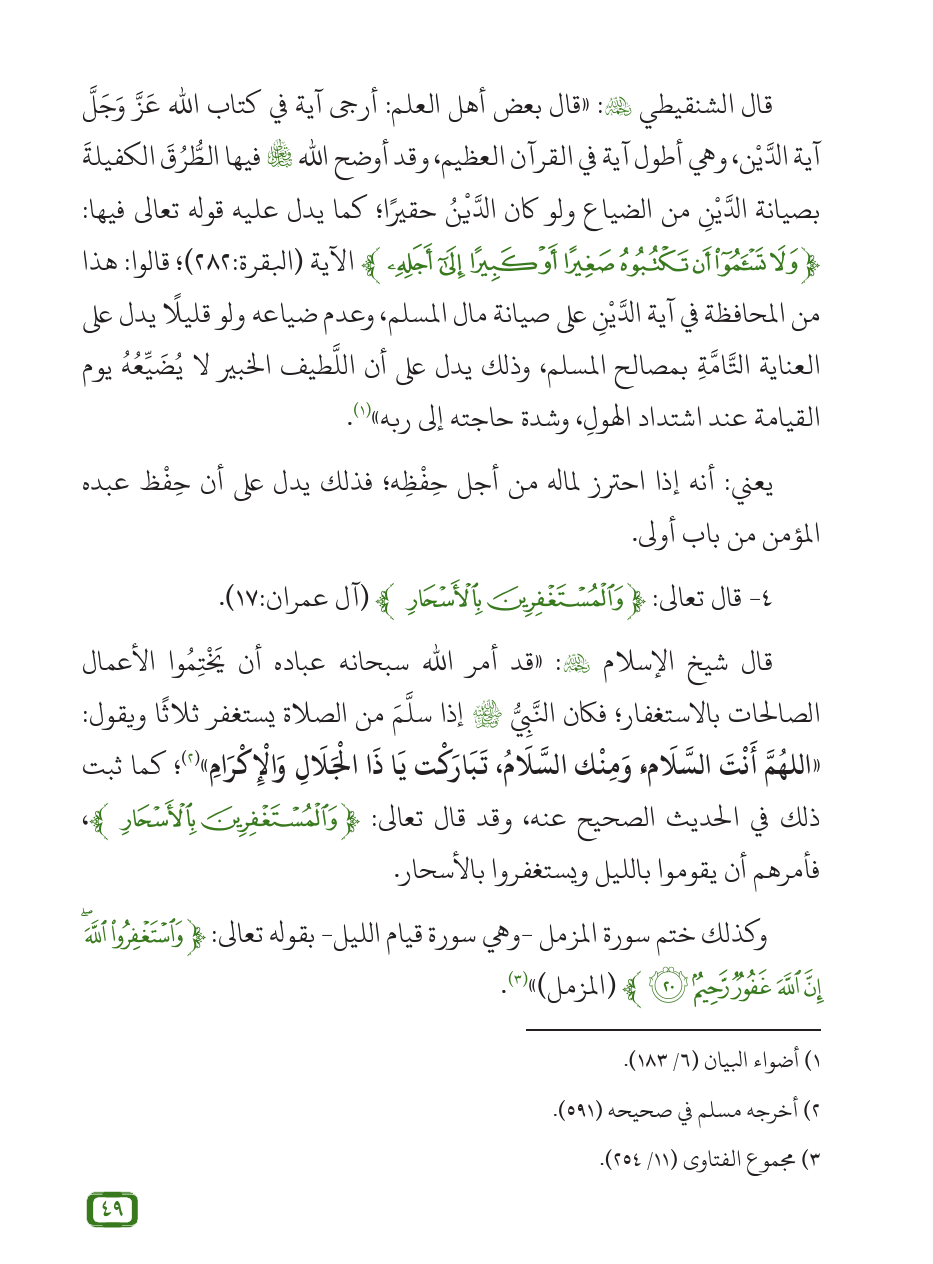 قال الشنقيطي ﵀: «قال بعض أهل العلم: أرجى آية في كتاب الله عَزَّ وَجَلَّ
آية الدَّيْن، وهي أطول آية في القرآن العظيم، وقد أوضح الله ﷾ فيها الطُّرُقَ الكفيلةَ
بصيانة الدَّيْنِ من الضياع ولو كان الدَّيْنُ حقيرًا؛ كما يدل عليه قوله تعالى فيها:
﴿وَلَا تَسْـَٔمُوٓا۟ أَن تَكْتُبُوهُ صَغِيرًا أَوْ كَبِيرًا إِلَىٰٓ أَجَلِهِۦ﴾ الآية (البقرة:٢٨٢)؛ قالوا: هذا
من المحافظة في آية الدَّيْنِ على صيانة مال المسلم، وعدم ضياعه ولو قليلًا يدل على
العناية التَّامَّةِ بمصالح المسلم، وذلك يدل على أن اللَّطيف الخبير لا يُضَيِّعُهُ يوم
القيامة عند اشتداد الهولِ، وشدة حاجته إلى ربه»(١).
يعني: أنه إذا احترز لماله من أجل حِفْظِه؛ فذلك يدل على أن حِفْظ عبده
المؤمن من باب أولى.
٤- قال تعالى: ﴿وَٱلْمُسْتَغْفِرِينَ بِٱلْأَسْحَارِ﴾ (آل عمران:١٧).
قال شيخ الإسلام ﵀: «قد أمر الله سبحانه عباده أن يَخْتِمُوا الأعمال
الصالحات بالاستغفار؛ فكان النَّبِيُّ ﷺ إذا سلَّمَ من الصلاة يستغفر ثلاثًا ويقول:
«اللهُمَّ أَنْتَ السَّلَامء وَمِنْك السَّلَامُ، تَبَارَكْت يَا ذَا الْجَلَالِ وَالْإِكْرَامِ»(٢)؛ كما ثبت
ذلك في الحديث الصحيح عنه، وقد قال تعالى: ﴿وَٱلْمُسْتَغْفِرِينَ بِٱلْأَسْحَارِ﴾،
فأمرهم أن يقوموا بالليل ويستغفروا بالأسحار.
وكذلك ختم سورة المزمل -وهي سورة قيام الليل- بقوله تعالى: ﴿وَٱسْتَغْفِرُوا۟ ٱللَّهَ ۖ
إِنَّ ٱللَّهَ غَفُورٌ رَّحِيمٌۢ ٢٠﴾ (المزمل)»(٣).
١) أضواء البيان (٦/ ١٨٣).
٢) أخرجه مسلم في صحيحه (٥٩١).
٣) مجموع الفتاوى (١١/ ٢٥٤).
٤٩